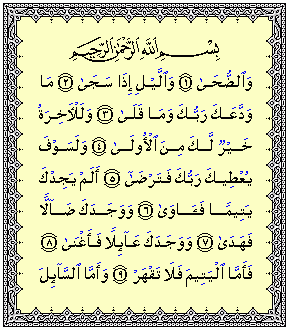 بِسْمِ ٱللَّهِ ٱلرَّحْمَٰنِ ٱلرَّحِيمِ
وَٱلضُّحَىٰ ١ وَٱلَّيْلِ إِذَا سَجَىٰ ٢ مَا
وَدَّعَكَ رَبُّكَ وَمَا قَلَىٰ ٣ وَلَلْـَٔاخِرَةُ
خَيْرٌ لَّكَ مِنَ ٱلْأُولَىٰ ٤ وَلَسَوْفَ
يُعْطِيكَ رَبُّكَ فَتَرْضَىٰٓ ٥ أَلَمْ يَجِدْكَ
يَتِيمًا فَـَٔاوَىٰ ٦ وَوَجَدَكَ ضَآلًّا
فَهَدَىٰ ٧ وَوَجَدَكَ عَآئِلًا فَأَغْنَىٰ ٨
فَأَمَّا ٱلْيَتِيمَ فَلَا تَقْهَرْ ٩ وَأَمَّا ٱلسَّآئِلَ